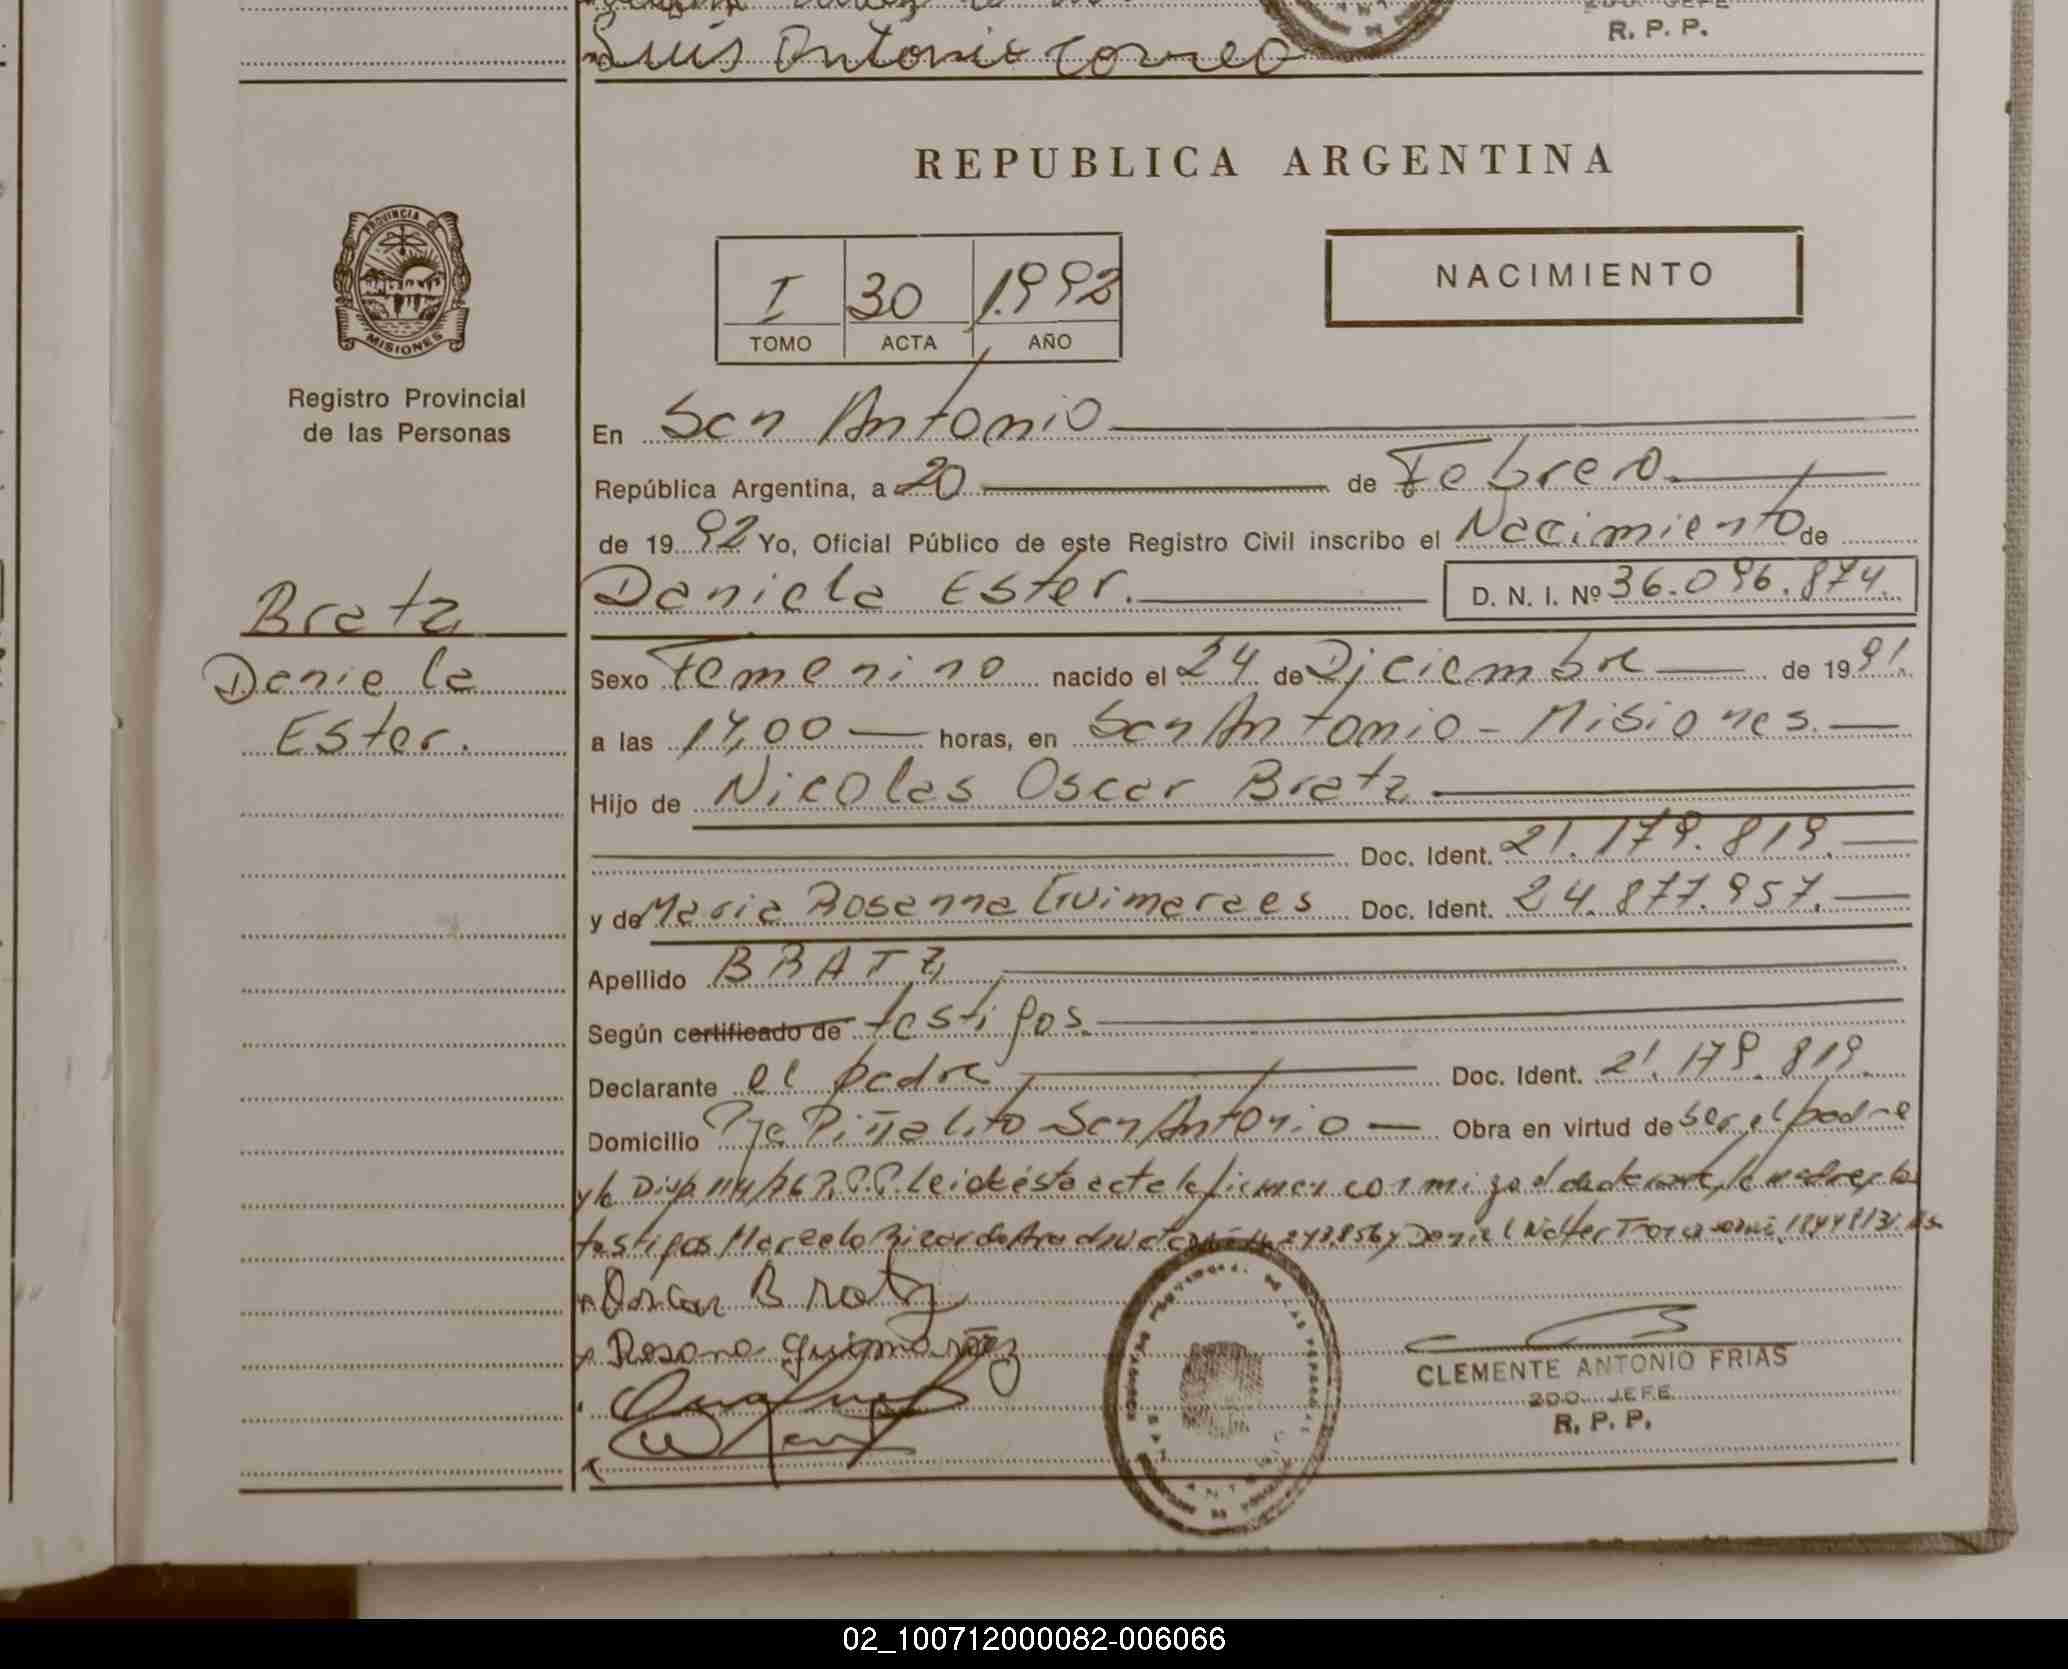 Luis Antonio Correo
2DO. JEFE
R. P. P.
REPUBLICA ARGENTINA
PROVINCIA DE
MISIONES
I 30 1.992
TOMO ACTA AÑO
NACIMIENTO
Registro Provincial
de las Personas
En San Antonio
República Argentina, a 20 de Febrero.
de 19 92 Yo, Oficial Público de este Registro Civil inscribo el Nacimiento de
Daniela Ester. D. N. I. Nº 36.096.874.
Bratz
Daniela
Ester.
Sexo Femenino nacido el 24 de Diciembre de 19 91.
a las 14,00 horas, en San Antonio - Misiones.
Hijo de Nicolas Oscar Bratz
Doc. Ident. 21.179.819.
y de Maria Rosanna Guimaraes Doc. Ident. 24.877.957.
Apellido BRATZ
Según certificado de testigos.
Declarante el padre Doc. Ident. 21.179.819.
Domicilio Pje Piñalito San Antonio Obra en virtud de ser el padre
y la Disp. 114/76 R.P.P. Leida ésta acta la firman conmigo el declarante, la madre y los
testigos Marcelo Ricardo y Daniel Walter
Oscar Bratz
Rosana Guimaraez
CLEMENTE ANTONIO FRIAS
2DO. JEFE
R. P. P.
02_100712000082-006066